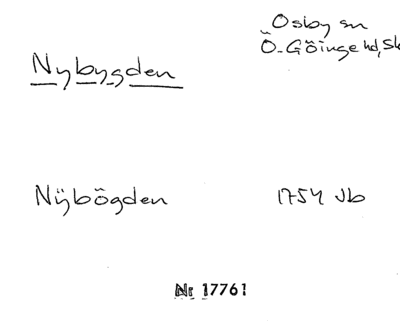 Osby sn
Ö-Göinge hd, Sk
Nybygden
Nÿbögden 1754 Jb
Nr 17761